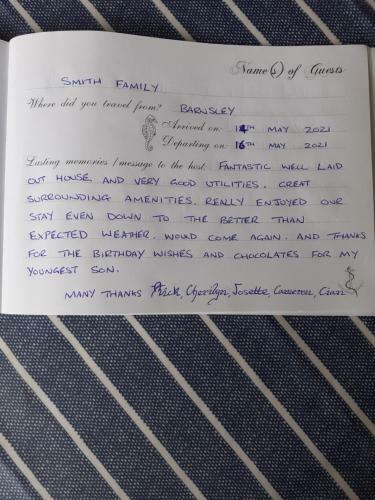 Name(s) of Guests
SMITH FAMILY
Where did you travel from? BARNSLEY
Arrived on: 14TH MAY 2021
Departing on: 16TH MAY 2021
Lasting memories / message to the host: FANTASTIC WELL LAID
OUT HOUSE, AND VERY GOOD UTILITIES. GREAT
SURROUNDING AMENITIES. REALLY ENJOYED OUR
STAY EVEN DOWN TO THE BETTER THAN
EXPECTED WEATHER. WOULD COME AGAIN. AND THANKS
FOR THE BIRTHDAY WISHES AND CHOCOLATES FOR MY
YOUNGEST SON.
MANY THANKS Rick, Cherilyn, Josette, Cameron, Cian